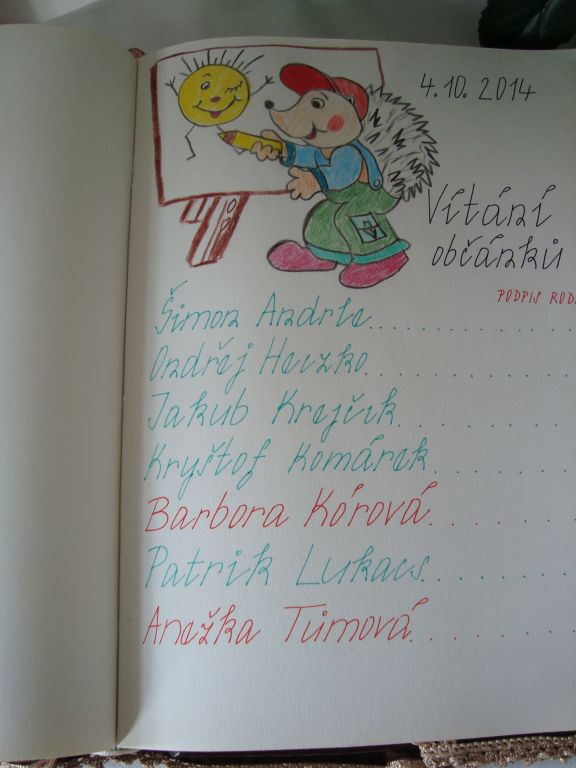 4.10.2014
Vítání
občánků
PODPIS ROD
Šimon Andrle
Ondřej Heczko
Jakub Krejčík
Kryštof Komárek
Barbora Kórová
Patrik Lukacs
Anežka Tůmová